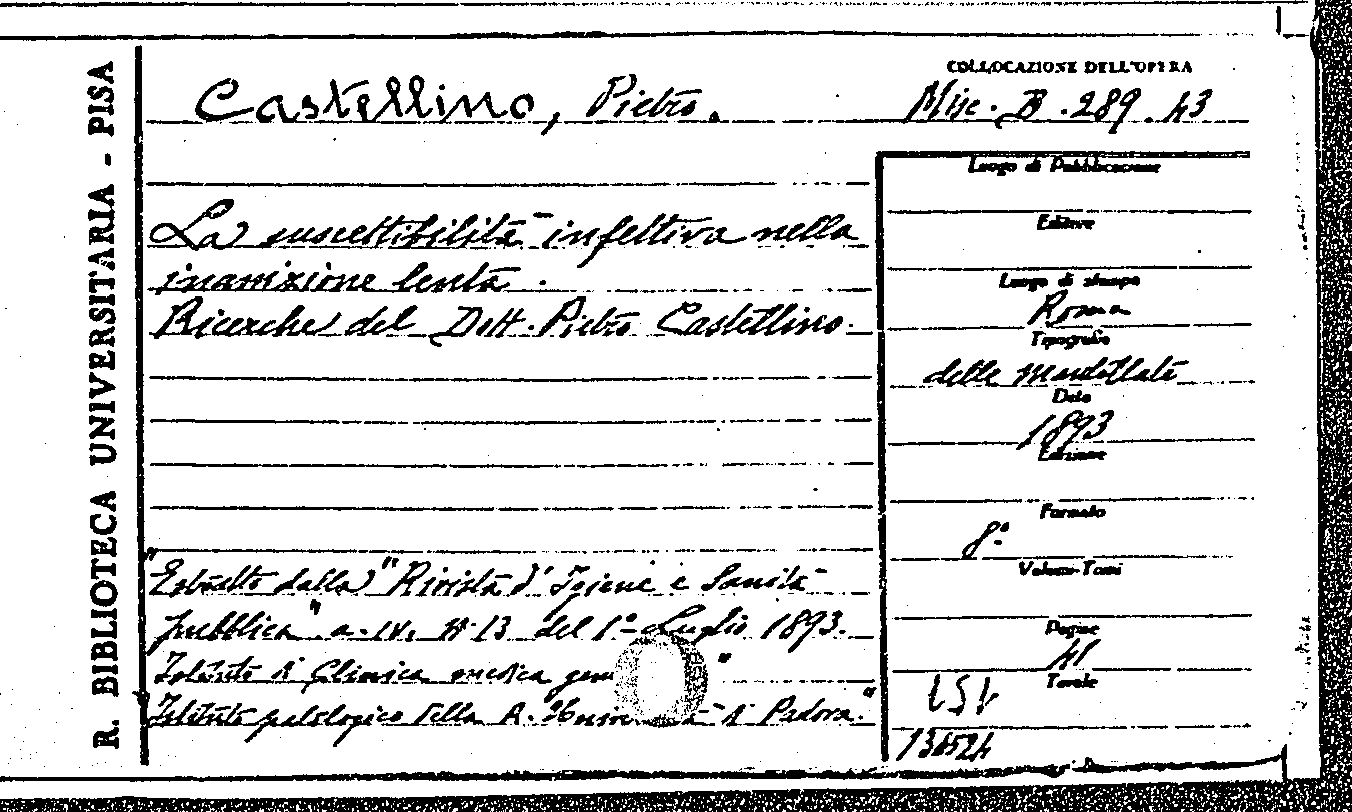 R. BIBLIOTECA UNIVERSITARIA - PISA
Castellino, Pietro.
COLLOCAZIONE DELL'OPERA
Misc. B. 289. 43
La suscettibilità infettiva nella
inanizione lenta.
Ricerche del Dott. Pietro Castellino.
"Estratto dalla "Rivista d'Igiene e Sanità
pubblica" a. IV. N 13 del 1° Luglio 1893.
Istituto di Clinica medica "
Istituto patologico della R. di Padova."
Luogo di Pubblicazione
Editore
Luogo di stampa
Roma
Tipografia
delle Mantellate
Data
1893
Edizione
Formato
8°
Volumi-Tomi
Pagine
41
Tavole